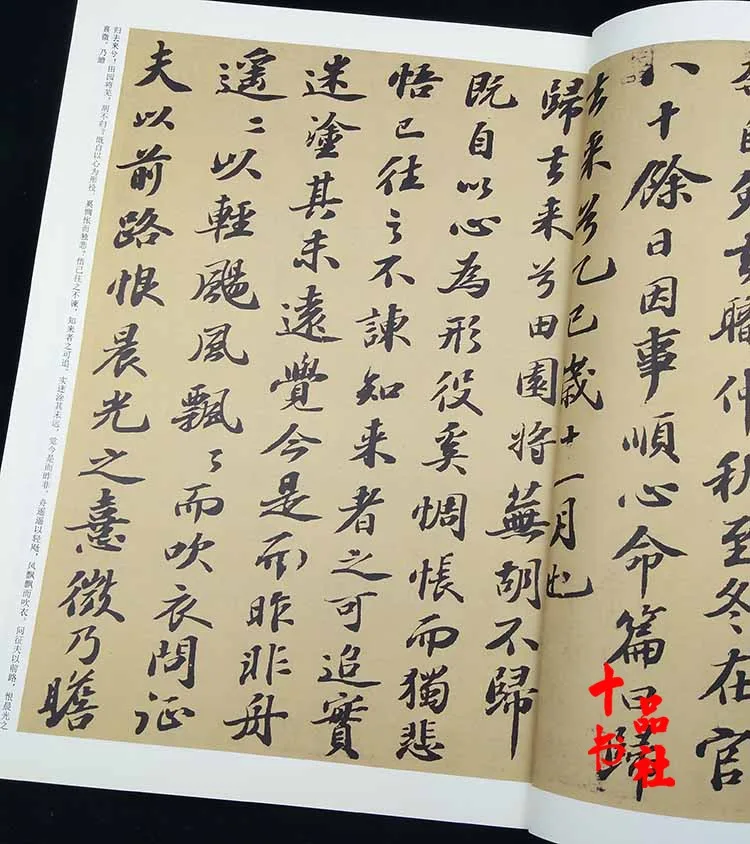 自免去職仲秋至冬在官
八十餘日因事順心命篇曰歸
去来兮乙巳歲十一月也
歸去来兮田園将蕪胡不歸
既自以心為形役奚惆悵而獨悲
悟已往之不諫知来者之可追實
迷塗其未遠覺今是而昨非舟
遥〻以輕颺風飄〻而吹衣問征
夫以前路恨晨光之熹微乃瞻
归去来兮！田园将芜，胡不归？既自以心为形役，奚惆怅而独悲？悟已往之不谏，知来者之可追。实迷涂其未远，觉今是而昨非。舟遥遥以轻飏，风飘飘而吹衣。问征夫以前路，恨晨光之
熹微。乃瞻
十品书社